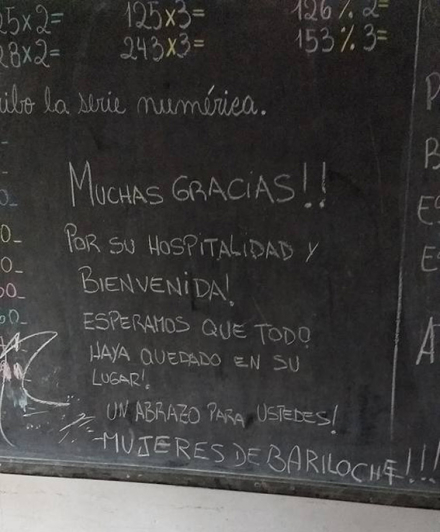 25x2= 125x3= 126%2=
28x2= 243x3= 153%3=
la serie numérica.
MUCHAS GRACIAS!!
POR SU HOSPITALIDAD Y
BIENVENIDA!
ESPERAMOS QUE TODO
HAYA QUEDADO EN SU
LUGAR!
UN ABRAZO PARA USTEDES!
MUJERES DE BARILOCHE!!!